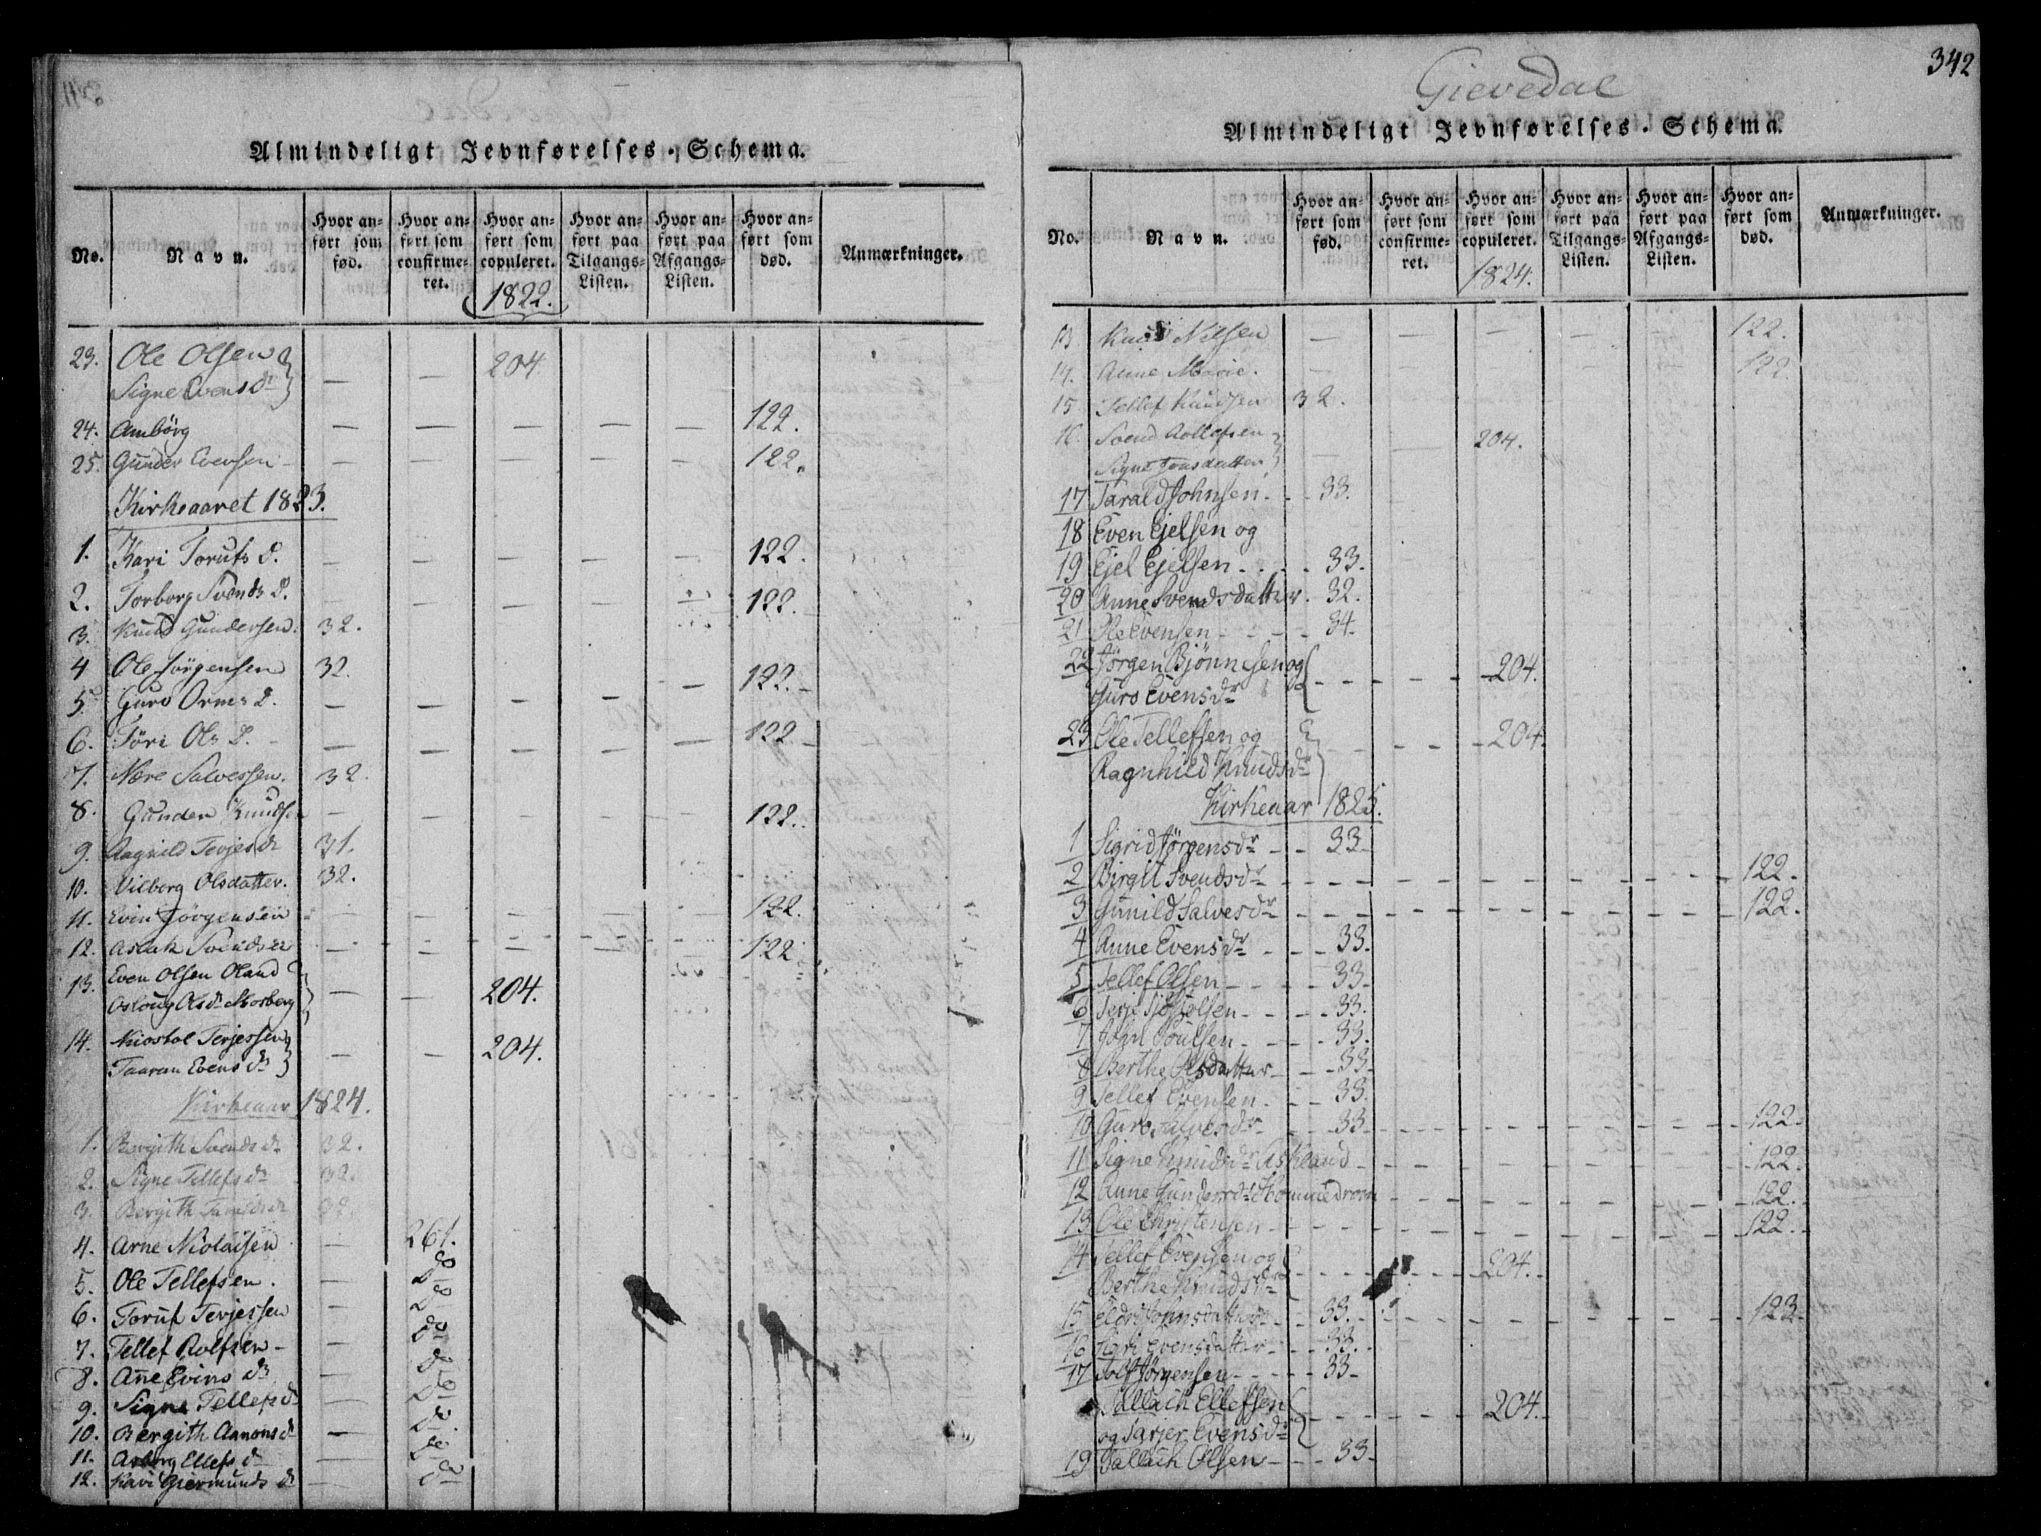 Almindeligt Jevnførelses-Schema.
No. Navn. Hvor anført som fød. Hvor anført som confirmeret. Hvor anført som copuleret. Hvor anført paa Tilgangs-Listen. Hvor anført paa Afgangs-Listen. Hvor anført som død. Anmærkninger.
1822.
23. Ole Olsen
Signe Evens dr — — 204
24. Anbörg — — — — — 122.
25. Gunder Evensen — — — — — — 122.
Kirkeaaret 1823.
1. Kari Torufs D. — — — — — 122.
2. Torborg Svends D. — — — — — 122.
3. Knud Gundersen. 32.
4 Ole Jörgensen 32.
5. Guro Orms D. — — — — — 122.
6. Töri Ols D. — — — — — 122
7. Nære Salvessen. 32.
8. Gunder Knudsen — — — — — 122.
9. Ragnild Terjes dr 31.
10. Vilborg Olsdatter. 32.
11. Evin Jörgensen — — — — — 122.
12. Aslak Svendsen — — — — — 122
13. Even Olsen Oland
Aslaug Olsdr Mosberg — — 204.
14. Niostol Terjessen
Taaran Evens dr — — 204.
Kirkeaar 1824.
1. Bergith Svends dr 32.
2. Signe Tellefs dr 32.
3. Bergith 32.
4. Arne Nicolaisen — 261.
5. Ole Tellefsen. — do
6. Toruf Terjessen — do
7. Tellef Rolfsen — do
8. Ane Evins dr — do
9. Signe Tellefs dr do
10. Bergith Aanons dr — do
11. Asborg Ellefs dr — do
12. Kari Giermunds dr — do
342
Gievedal
Almindeligt Jevnførelses-Schema.
No. Navn. Hvor anført som fød. Hvor anført som confirmeret. Hvor anført som copuleret. Hvor anført paa Tilgangs-Listen. Hvor anført paa Afgangs-Listen. Hvor anført som død. Anmærkninger.
1824.
13 Knud Nilsen — — — — 122.
14. Anne Marie. — — — — 122.
15. Tellef Knudsen 32.
16. Svend
Signe Jonsdatter — — 204.
17 Tarald Johnsen. - - 33.
18 Even Ejelsen og
19 Ejel Ejelsen - - - 33.
20 Anne Svendsdatter. 32.
21 Ole Evensen - - - 34.
22 Jörgen Bjönnesen og
Guro Evensdr - - - - 204.
23 Ole Tellefsen og
Ragnhild Knudsdr - - - 204.
Kirkeaar 1825.
1 Sigrid Jørgensdr - - 33.
2 Birgit Svendsdr - - - - - 122.
3 Gunild Salvesdr - - - - - 122.
4 Anne Evensdr - - - 33.
5 Tellef Olsen - - - - 33.
6 Terje - - - - 33.
7 John Poulsen - - - - 33.
8 Berthe Olsdatter - - - 33
9 Tellef Evensen - - - 33.
10 Guro Salvesdr - - 33 - - - - - 122.
11 Signe Knudsdr Askland - - - - - 122.
12 Anne Gundersdr Hommedrom - - - - - 122.
13 Ole Christensen - - - - - 122.
14 Tellef Evensen og
Berthe Knudsdr - - - - 204.
15 Eldri Johnsdatter - - 33. - - - - - 123.
16 Kari Evensdatter - - - 33.
17 Jörgensen - - - - 33 -
Tallach Ellefsen
og Tarjer Evensdr - - - - 204.
19 Tallach Olsen - - - 33 -